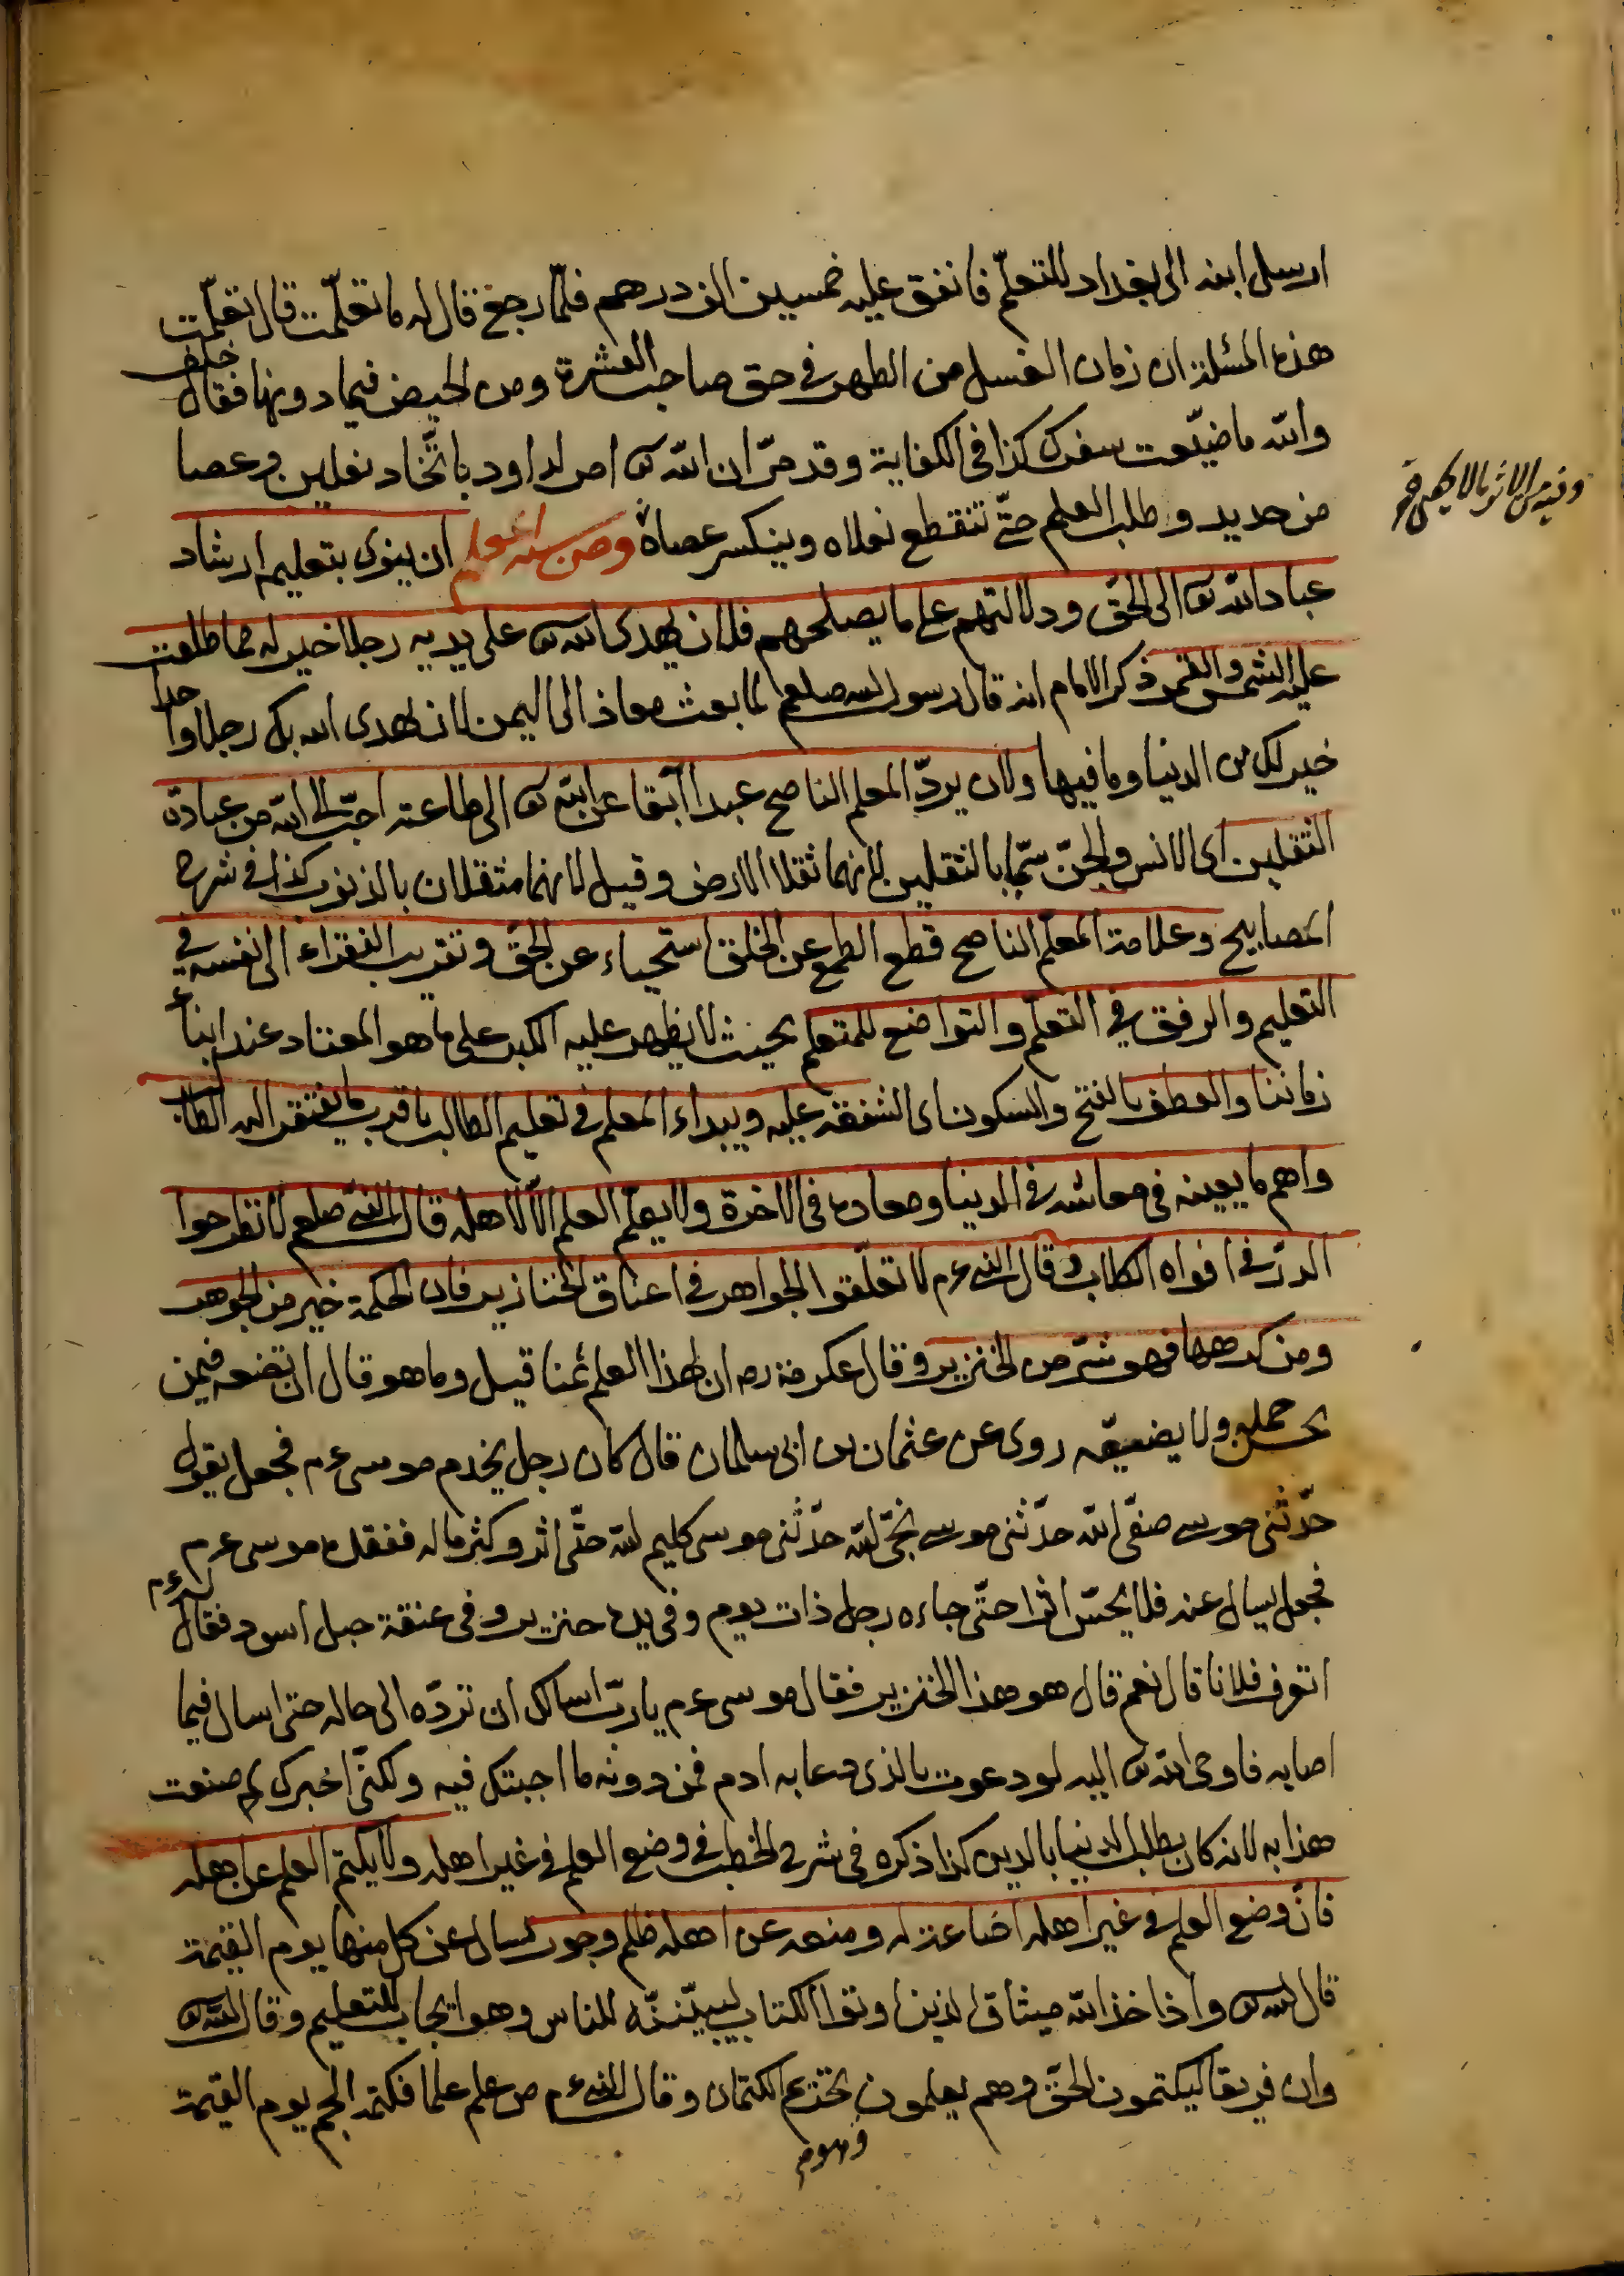 ارسل ابنه الى بغداد للتعلّم فانفق عليه خمسين الف درهم فلمّا رجع قال له ما تعلّمت قال تعلّمت
هذه المسئلة ان زمان الغسل من الطهر فى حق صاحب العشرة ومن الحيض فيما دونها فقال خلف
والله ما ضيّعت سفرك كذا فى الكفاية وقد مرّ ان الله تع امر لداود باتّخاد نعلين وعصا
من حديد وطلب العلم حتّى تنقطع نعلاه وينكسر عصاه ومن سنة المعلم ان ينوى بتعليمه ارشاد
عباد الله تع الى الحق ودلالتهم على ما يصلحهم فلان يهدى الله تع على يديه رجلا خير له مما طلعت
عليه الشمس والقمر ذكر الامام انه قال رسول الله صلعم لما بعث معاذ الى اليمن لان يهدى الله بك رجلا واحدا
خير لك من الدنيا وما فيها ولان يردّ المعلم الناصح عبدا آبقا عن الله تع الى طاعته احبّ الى الله من عبادة
الثقلين اى الانس والجنّ سمّيا بالثقلين لانهما ثقلا الارض وقيل لانهما مثقلان بالذنوب كذا فى شرح
المصابيح وعلامة المعلّم الناصح قطع الطمع عن الخلق استحياء عن الحق وتقريب الفقراء الى نفسه فى
التعليم والرفق فى التعلّم والتواضع للمتعلم بحيث لا يظهر عليه الكبر على ما هو المعتاد عند ابناء
زماننا والعطف بالفتح والسكون اى الشفقة عليه ويبداء المعلم فى تعليم الطالب ما قرب ما يفتقر اليه الطالب
واهم ما يعينه فى معاشه فى الدنيا ومعاده فى الاخرة ولا يعلّم العلم الّا لاهله قال النبى صلعم لا تطرحوا
الدرّ فى افواه الكلاب وقال النبى عم لا تعلّقوا الجواهر فى اعناق الخنازير فان الحكمة خير من الجوهر
ومن كرهها فهو شرّ من الخنزير وقال عكرمة رحه ان لهذا العلم ثمنا قيل وما هو قال ان تضعه فيمن
يحسن حمله ولا يضيعه روى عن عثمان بن ابى سلمان قال كان رجل يخدم موسى عم فجعل يقول
حدّثنى موسى صفىّ الله حدّثنى موسى نجىّ الله حدّثنى موسى كليم الله حتّى اثر وكثر ماله ففقده موسى عم
فجعل يسال عنه فلا يحسّ اثرا حتّى جاءه رجل ذات يوم وفى يده خنزير وفى عنقه حبل اسود فقال له عم
اتعرف فلانا قال نعم قال هو هذا الخنزير فقال موسى عم يا ربّ اسالك ان تردّه الى حاله حتى اسال فيما
اصابه فاوحى الله تع اليه لو دعوت بالذى دعا به ادم فمن دونه ما اجبتك فيه ولكنّى اخبرك لم صنعت
هذا به لانه كان يطلب الدنيا بالدين كذا ذكره فى شرح الخطب فى وضع العلم فى غير اهله ولا يكتم العلم عن اهله
فانّ وضع العلم فى غير اهله اضاعة له ومنعه عن اهله ظلم وجور يسال عن كل منهما يوم القيمة
قال الله تع واذا اخذ الله ميثاق الذين اوتوا الكتاب ليبيّننّه للناس وهو ايجاب للتعليم وقال الله تع
وان فريقا ليكتمون الحق وهم يعلمون وهو تحريم الكتمان وقال النبى عم من علم علما فكتمه الجم يوم القيمة